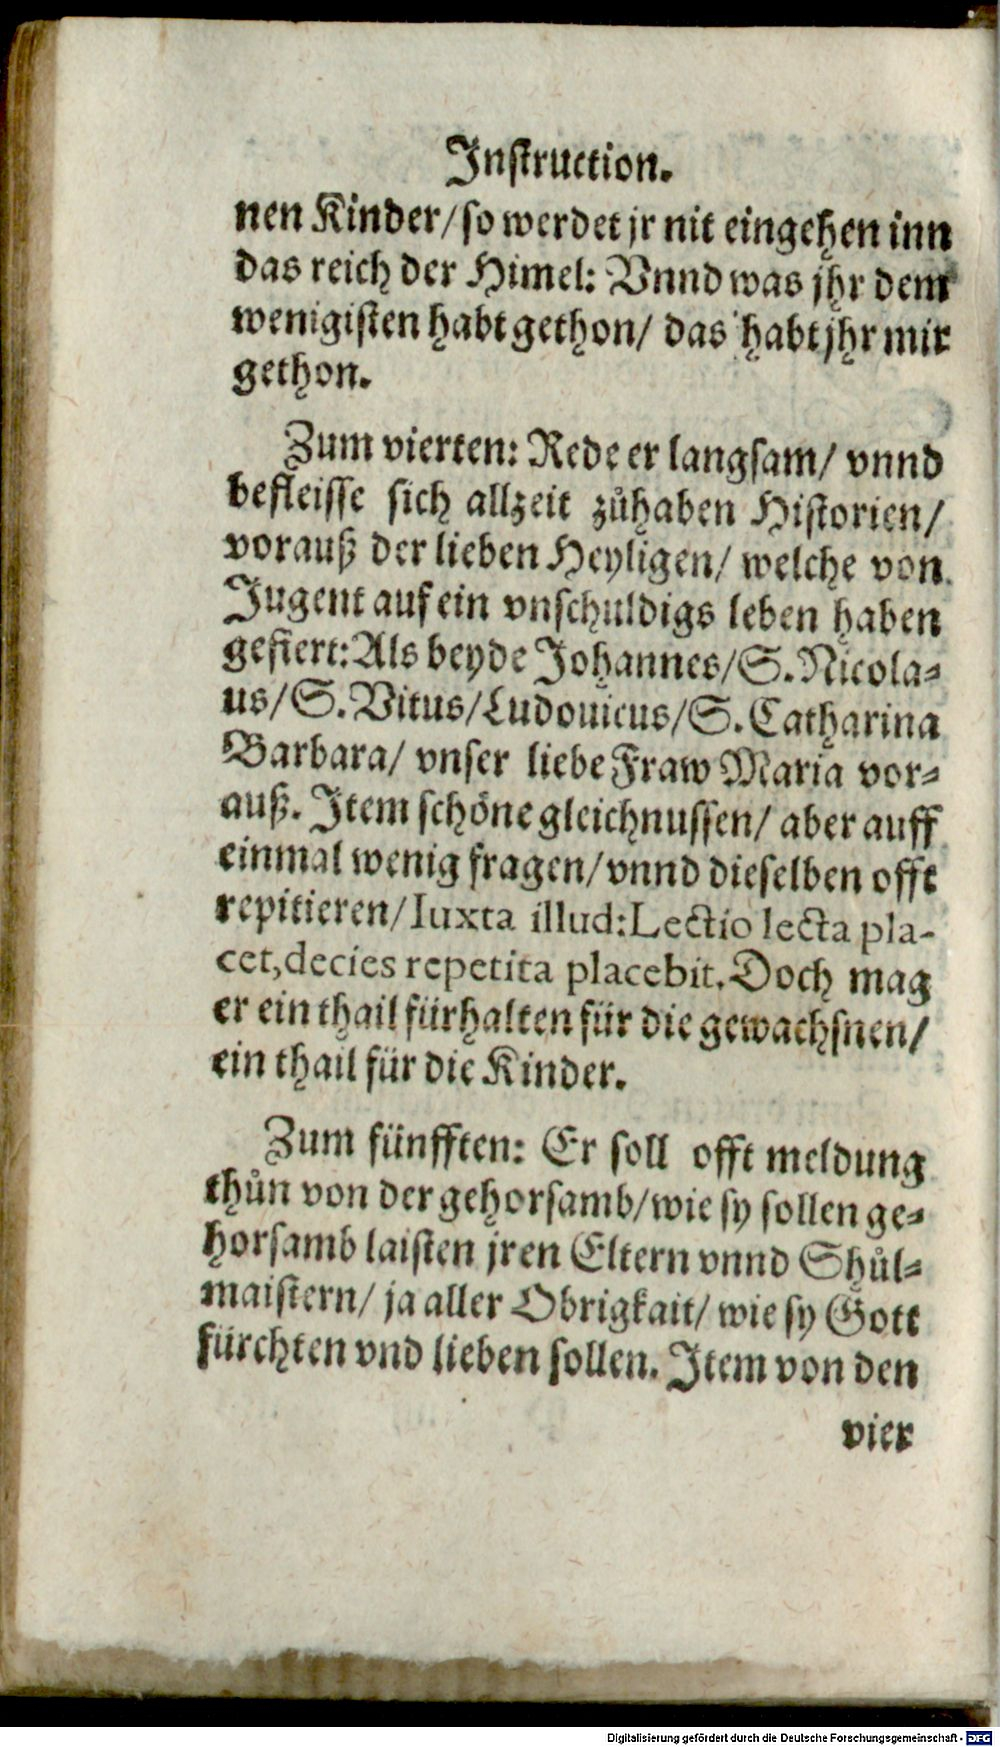 Instruction.
nen Kinder/ so werdet jr nit eingehen inn
das reich der Himel: Vnnd was jhr dem
wenigisten habt gethon/ das habt jhr mir
gethon.
Zum vierten: Rede er langsam/ vnnd
befleisse sich allzeit zůhaben Historien/
vorauß der lieben Heyligen/ welche von
Jugent auf ein vnschuldigs leben haben
gefiert: Als beyde Johannes/ S. Nicola=
us/ S. Vitus/ Ludouicus/ S. Catharina
Barbara/ vnser liebe Fraw Maria vor=
auß. Item schöne gleichnussen/ aber auff
einmal wenig fragen/ vnnd dieselben offt
repitieren/ Iuxta illud: Lectio lecta pla-
cet, decies repetita placebit. Doch mag
er ein thail fürhalten für die gewachsnen/
ein thail für die Kinder.
Zum fünfften: Er soll offt meldung
thůn von der gehorsamb/ wie sy sollen ge=
horsamb laisten jren Eltern vnnd Shůl=
maistern/ ja aller Obrigkait/ wie sy Gott
fürchten vnd lieben sollen. Item von den
vier
Digitalisierung gefördert durch die Deutsche Forschungsgemeinschaft - DFG